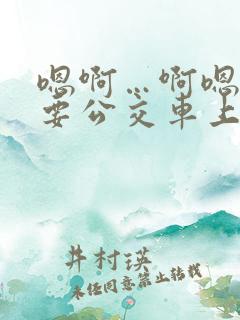 嗯啊…啊嗯
要公交车上
井村瑛
未经同意禁止转载